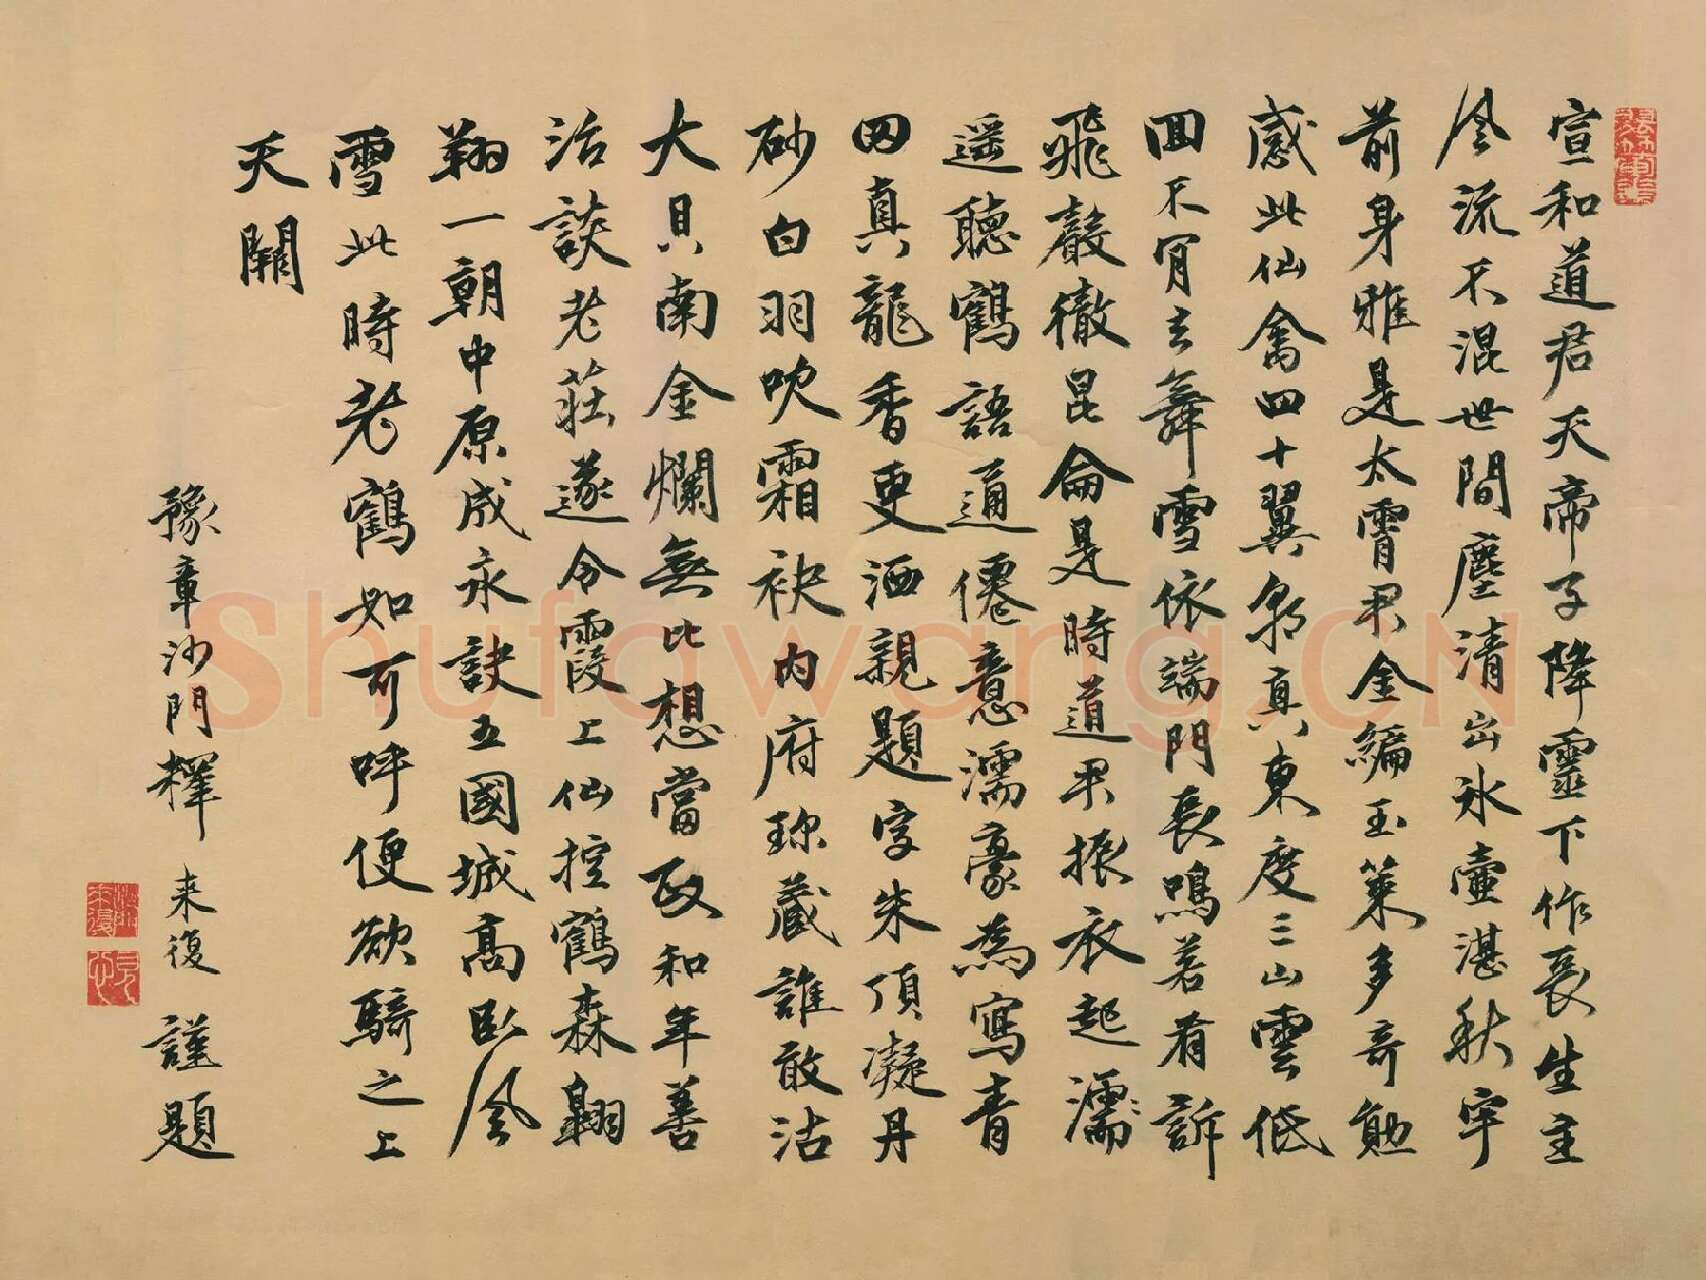 宣和道君天帝子降靈下作長生主
風流不混世間塵清出冰壺湛秋宇
前身雅是太霄君金編玉篆多奇勳
感此仙禽四十翼朝真東度三山雲低
回不肯去舞雪依端門長鳴若有訴
飛聲徹昆侖是時道君振衣起濡
遥聽鶴語通僊意濡豪為寫青
田真龍香更洒親題字朱頂凝丹
砂白羽吹霜袂內府珎藏誰敢沽
大貝南金爛無比想當政和年善
治談老莊遂令霞上仙控鶴森翱
翔一朝中原成永訣五國城高臥風
雪此時老鶴如可呼便欲騎之上
天關
豫章沙門釋来復謹題
Shufawang.CN